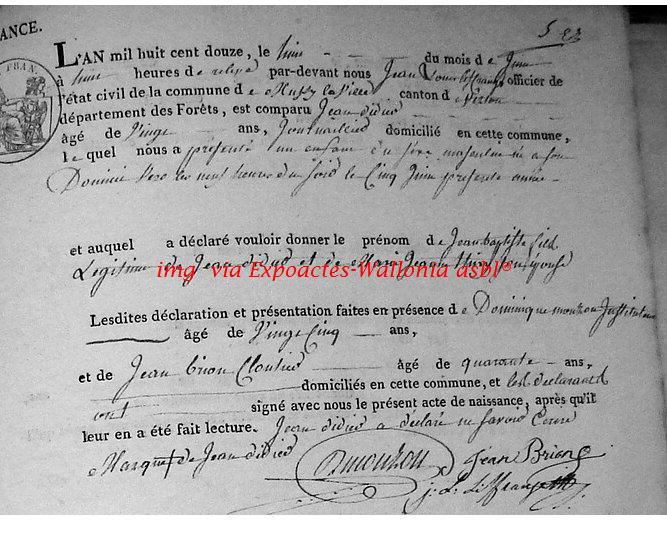 ANCE.
5 23
L'AN mil huit cent douze, le huit du mois de Juin
à huit heures de relevé par-devant nous Jean Louis officier de
l'état civil de la commune de Mussy la ville canton de Virton
département des Forêts, est comparu Jean didier
âgé de Vingt ans, domicilié en cette commune,
lequel nous a présenté un enfant du sexe masculin né a son
Domicile vers les neuf heures du soir le Cinq Juin présente année
et auquel a déclaré vouloir donner le prénom de Jean baptiste fils
Légitime de Jean didier et de Marie Jeanne son épouse
img via Expoactes-Wallonia asbl®
Lesdites déclaration et présentation faites en présence de Dominique mouzon Instituteur
âgé de Vingt Cinq ans,
et de Jean brion Cloutier âgé de quarante ans,
domiciliés en cette commune, et les déclarants
ont signé avec nous le présent acte de naissance, après qu'il
leur en a été fait lecture. Jean didier a déclaré ne savoir Ecrire
Marque + de Jean Didier Dmouzon Jean Brion